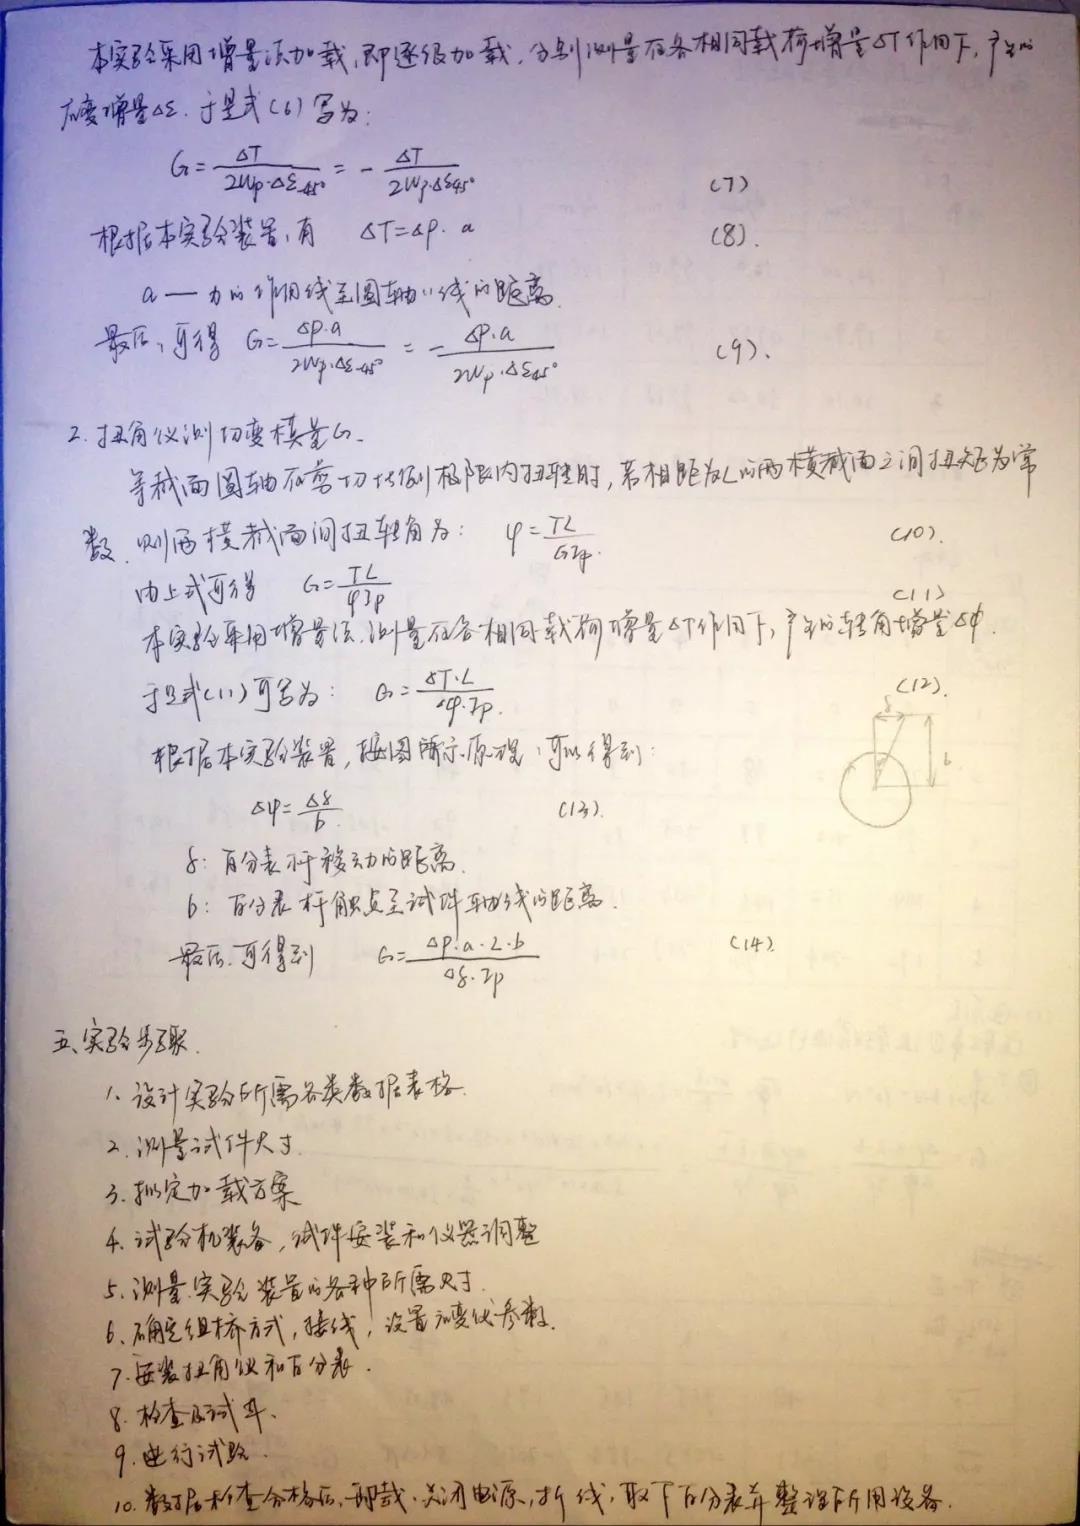 本实验采用增量法加载,即逐级加载,分别测量在各相同载荷增量ΔT作用下,产生的
应变增量Δε. 于是式(6)写为:
G=ΔT/(2Wp·Δε-45°) = -ΔT/(2Wp·Δε45°) (7)
根据本实验装置,有 ΔT=ΔP·a (8).
a — 力的作用线至圆轴心线的距离.
最后,可得 G=ΔP·a/(2Wp·Δε-45°) = -ΔP·a/(2Wp·Δε45°) (9).
2. 扭角仪测切变模量G.
等截面圆轴在剪切比例极限内扭转时,若相距为L的两横截面之间扭矩为常
数,则两横截面间扭转角为: φ=TL/(GIp). (10).
由上式可得 G=TL/(φIp) (11)
本实验采用增量法.测量在各相同载荷增量ΔT作用下,产生的转角增量Δφ.
于是式(11)可写为: G=ΔT·L/(Δφ·Ip). (12).
δ
b
根据本实验装置,按图所示原理,可以得到:
Δφ=Δδ/b. (13).
δ: 百分表杆移动的距离.
b: 百分表杆触点至试件轴线的距离.
最后.可得到 G=ΔP·a·L·b/(Δδ·Ip) (14).
五、实验步骤.
1. 设计实验所需各类数据表格.
2. 测量试件尺寸.
3. 拟定加载方案
4. 试验机装备,试件安装和仪器调整
5. 测量实验装置的各种所需尺寸.
6. 确定组桥方式,接线,设置应变仪参数.
7. 安装扭角仪和百分表.
8. 检查及试车.
9. 进行试验.
10. 数据检查合格后,卸载、关闭电源,拆线,取下百分表并整理所用设备.